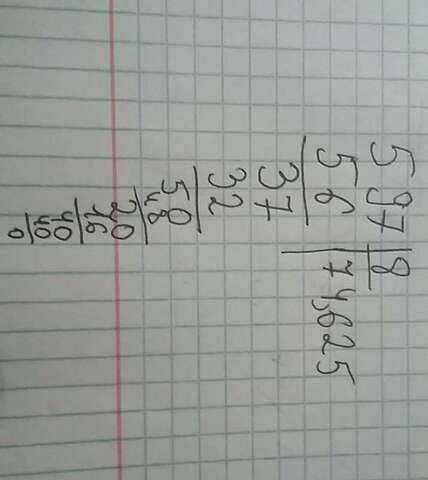 597 8
56 74,625
37
32
50
48
20
16
40
40
0